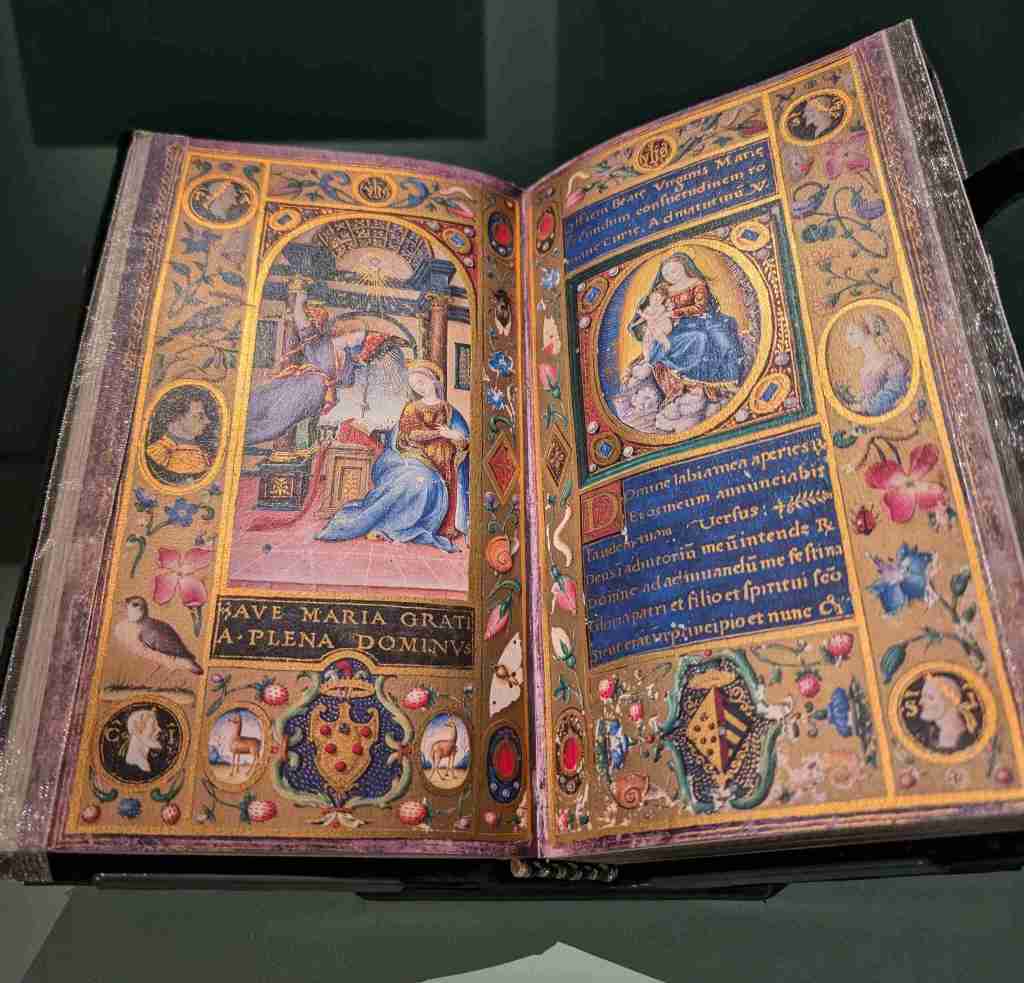 yhs
AVE MARIA GRATI
A·PLENA DOMINVS
yhs
Beatę Virginis Marię
secundum consuetudinem ro
manę curię. Ad matutinū. V.
Domine labia mea aperies R
Et os meum annunciabit
laudem tuam Versus:
Deus ī adiutoriū meū intende R
Domine ad adiuuandū me festina
Gloria patri et filio et spiritui scō
Sicut erat in principio et nunc &